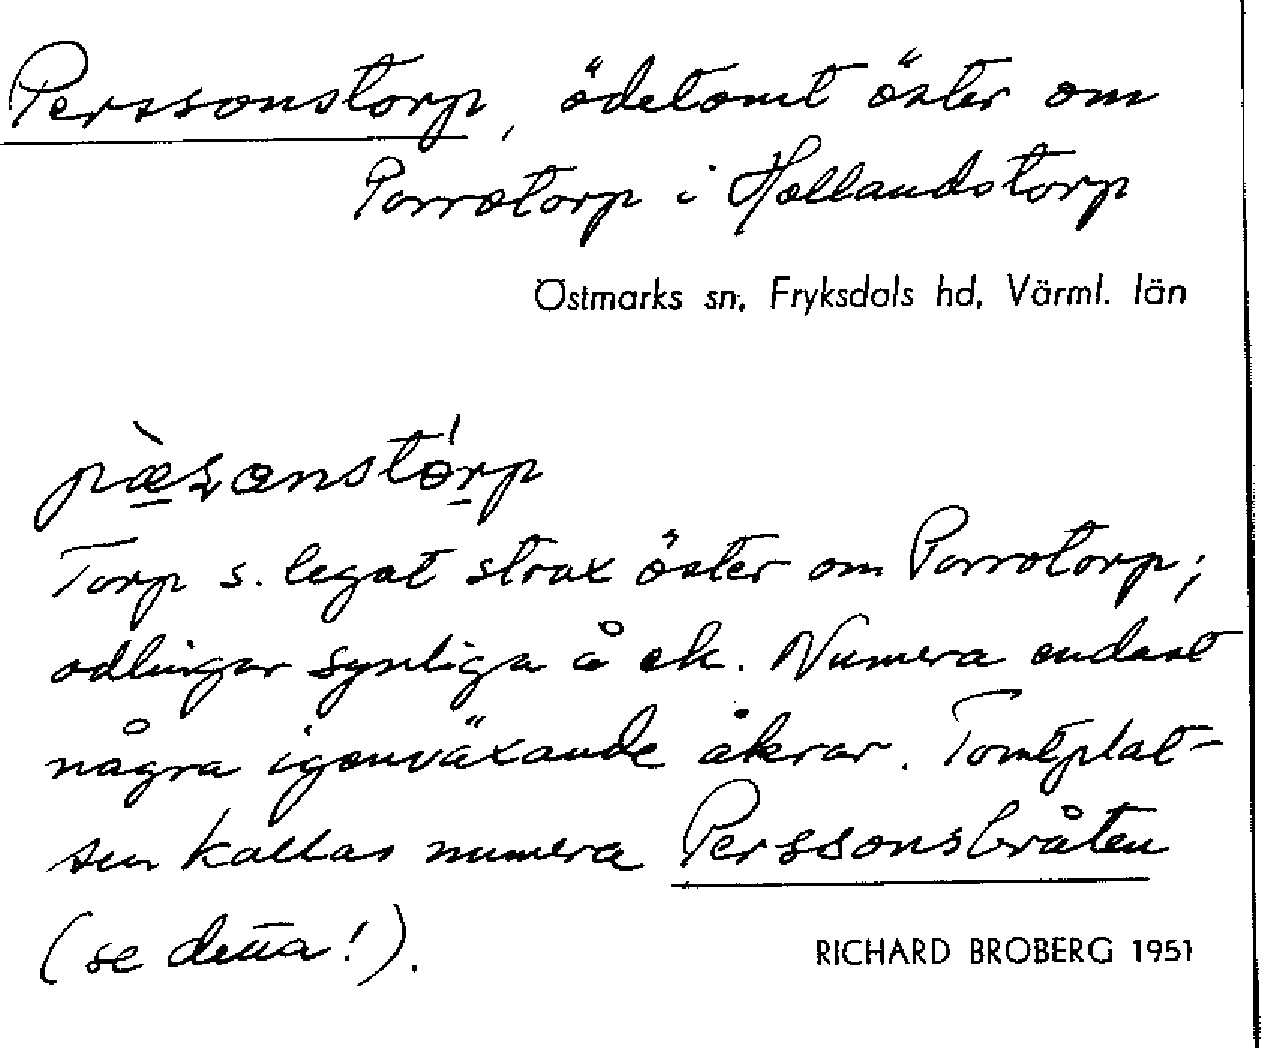 Perssonstorp, ödetomt öster om
Porrotorp i Hollandstorp
Östmarks sn, Fryksdals hd, Värml. län
pæ̀sonstórp
Torp s. legat strax öster om Porrotorp;
odlingar synliga å ek. Numera endast
några igenväxande åkrar. Tomtplat-
sen kallas numera Perssonsbråten
(se detta!).
RICHARD BROBERG 1951